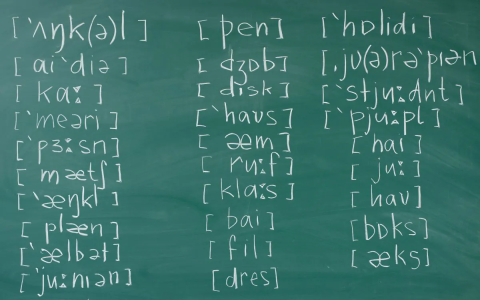 [ˋʌŋk(ə)l]
[aiˋdiə]
[kaː]
[ˋmeəri]
[ˋpɜːsn]
[mætʃ]
[ˋæŋkl]
[plæn]
[ˋælbət]
[ˋjuːnɪən]
[pen]
[dʒɒb]
[disk]
[ˋhaʊs]
[æm]
[ruːf]
[klaːs]
[bai]
[fil]
[dres]
[ˋhɒlidi]
[ˌjʊ(ə)rəˋpɪən]
[ˋstjuːdnt]
[ˋpjuːpl]
[hai]
[juː]
[hav]
[bɒks]
[æks]